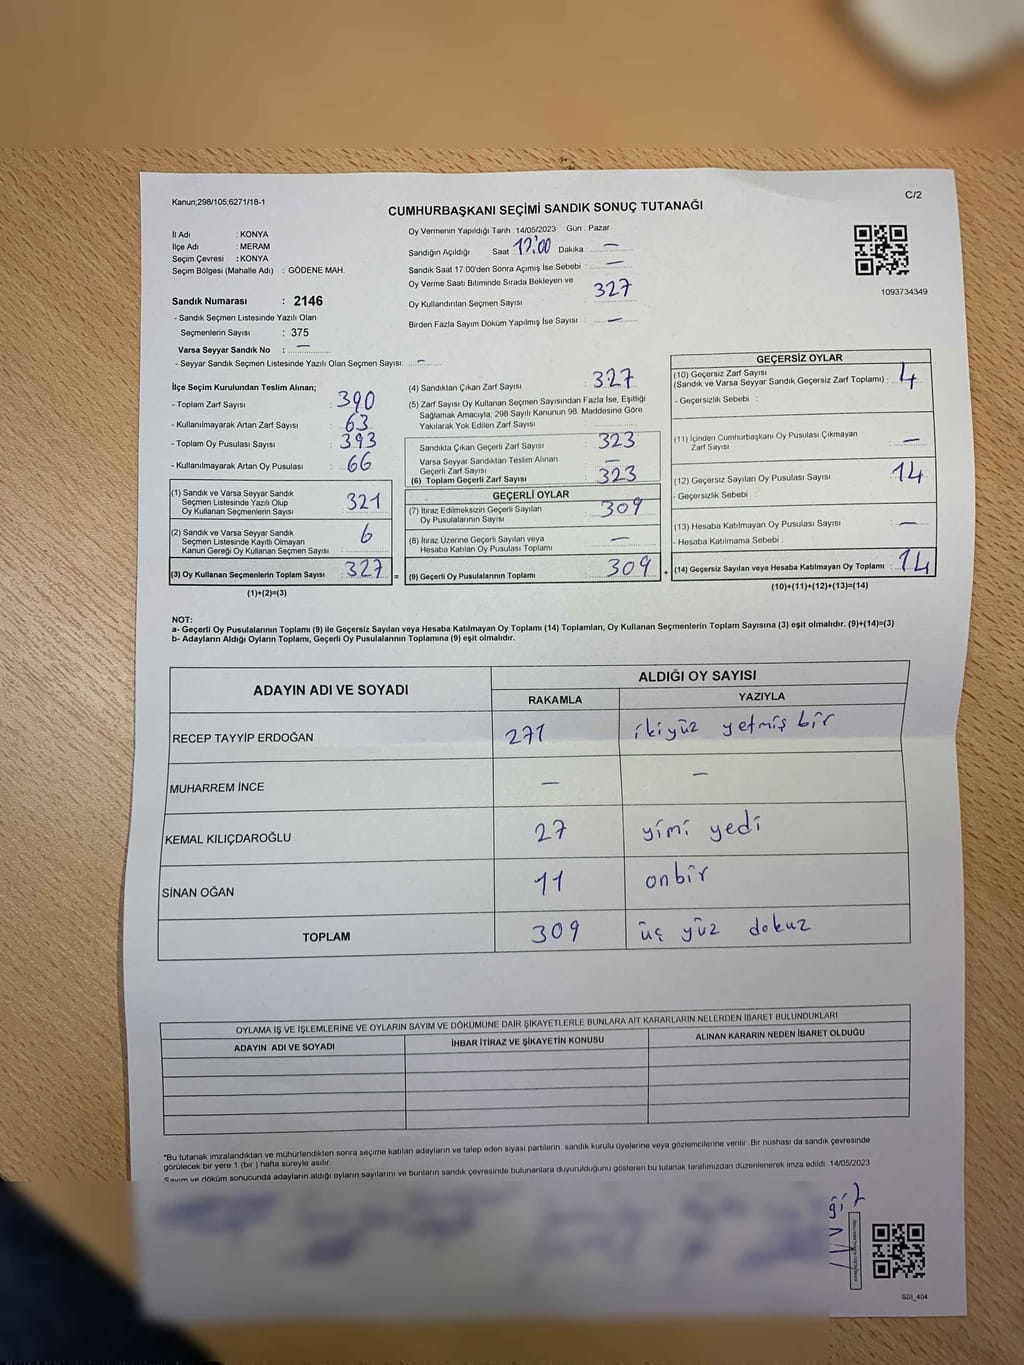 Kanun;298/105;6271/18-1
C/2
CUMHURBAŞKANI SEÇİMİ SANDIK SONUÇ TUTANAĞI
İl Adı : KONYA
İlçe Adı : MERAM
Seçim Çevresi : KONYA
Seçim Bölgesi (Mahalle Adı) : GÖDENE MAH.
Sandık Numarası : 2146
- Sandık Seçmen Listesinde Yazılı Olan
Seçmenlerin Sayısı : 375
Varsa Seyyar Sandık No : —
- Seyyar Sandık Seçmen Listesinde Yazılı Olan Seçmen Sayısı: —
Oy Vermenin Yapıldığı Tarih : 14/05/2023 Gün : Pazar
Sandığın Açıldığı Saat 17:00 Dakika : —
Sandık Saat 17.00'den Sonra Açımış İse Sebebi : —
Oy Verme Saati Bitiminde Sırada Bekleyen ve
Oy Kullandırılan Seçmen Sayısı 327
Birden Fazla Sayım Döküm Yapılmış İse Sayısı : —
1093734349
İlçe Seçim Kurulundan Teslim Alınan;
- Toplam Zarf Sayısı : 390
- Kullanılmayarak Artan Zarf Sayısı : 63
- Toplam Oy Pusulası Sayısı : 393
- Kullanılmayarak Artan Oy Pusulası : 66
(1) Sandık ve Varsa Seyyar Sandık
Seçmen Listesinde Yazılı Olup
Oy Kullanan Seçmenlerin Sayısı : 321
(2) Sandık ve Varsa Seyyar Sandık
Seçmen Listesinde Kayıtlı Olmayan
Kanun Gereği Oy Kullanan Seçmen Sayısı : 6
(3) Oy Kullanan Seçmenlerin Toplam Sayısı : 327 =
(1)+(2)=(3)
(4) Sandıktan Çıkan Zarf Sayısı : 327
(5) Zarf Sayısı Oy Kullanan Seçmen Sayısından Fazla İse, Eşitliği
Sağlamak Amacıyla; 298 Sayılı Kanunun 98. Maddesine Göre
Yakılarak Yok Edilen Zarf Sayısı :
Sandıkta Çıkan Geçerli Zarf Sayısı : 323
Varsa Seyyar Sandıktan Teslim Alınan
Geçerli Zarf Sayısı : —
(6) Toplam Geçerli Zarf Sayısı : 323
GEÇERLİ OYLAR
(7) İtiraz Edilmeksizin Geçerli Sayılan
Oy Pusulalarının Sayısı : 309
(8) İtiraz Üzerine Geçerli Sayılan veya
Hesaba Katılan Oy Pusulası Toplamı : —
(9) Geçerli Oy Pusulalarının Toplamı : 309 +
GEÇERSİZ OYLAR
(10) Geçersiz Zarf Sayısı
(Sandık ve Varsa Seyyar Sandık Geçersiz Zarf Toplamı) : 4
- Geçersizlik Sebebi :
(11) İçinden Cumhurbaşkanı Oy Pusulası Çıkmayan
Zarf Sayısı : —
(12) Geçersiz Sayılan Oy Pusulası Sayısı : 14
- Geçersizlik Sebebi :
(13) Hesaba Katılmayan Oy Pusulası Sayısı : —
- Hesaba Katılmama Sebebi :
(14) Geçersiz Sayılan veya Hesaba Katılmayan Oy Toplamı : 14
(10)+(11)+(12)+(13)=(14)
NOT:
a- Geçerli Oy Pusulalarının Toplamı (9) ile Geçersiz Sayılan veya Hesaba Katılmayan Oy Toplamı (14) Toplamları, Oy Kullanan Seçmenlerin Toplam Sayısına (3) eşit olmalıdır. (9)+(14)=(3)
b- Adayların Aldığı Oyların Toplamı, Geçerli Oy Pusulalarının Toplamına (9) eşit olmalıdır.
ADAYIN ADI VE SOYADI
ALDIĞI OY SAYISI
RAKAMLA YAZIYLA
RECEP TAYYİP ERDOĞAN 271 ikiyüz yetmiş bir
MUHARREM İNCE — —
KEMAL KILIÇDAROĞLU 27 yimi yedi
SİNAN OĞAN 11 onbir
TOPLAM 309 üç yüz dokuz
OYLAMA İŞ VE İŞLEMLERİNE VE OYLARIN SAYIM VE DÖKÜMÜNE DAİR ŞİKAYETLERLE BUNLARA AİT KARARLARIN NELERDEN İBARET BULUNDUKLARI
ADAYIN ADI VE SOYADI İHBAR İTİRAZ VE ŞİKAYETİN KONUSU ALINAN KARARIN NEDEN İBARET OLDUĞU
*Bu tutanak imzalandıktan ve mühürlendikten sonra seçime katılan adayların ve talep eden siyasi partilerin sandık kurulu üyelerine veya gözlemcilerine verilir. Bir nüshası da sandık çevresinde
görülecek bir yere 1 (bir ) hafta süreyle asılır.
Sayım ve döküm sonucunda adayların aldığı oyların sayılarını ve bunların sandık çevresinde bulunanlara duyurulduğunu gösteren bu tutanak tarafımızdan düzenlenerek imza edildi. 14/05/2023
SSI_404